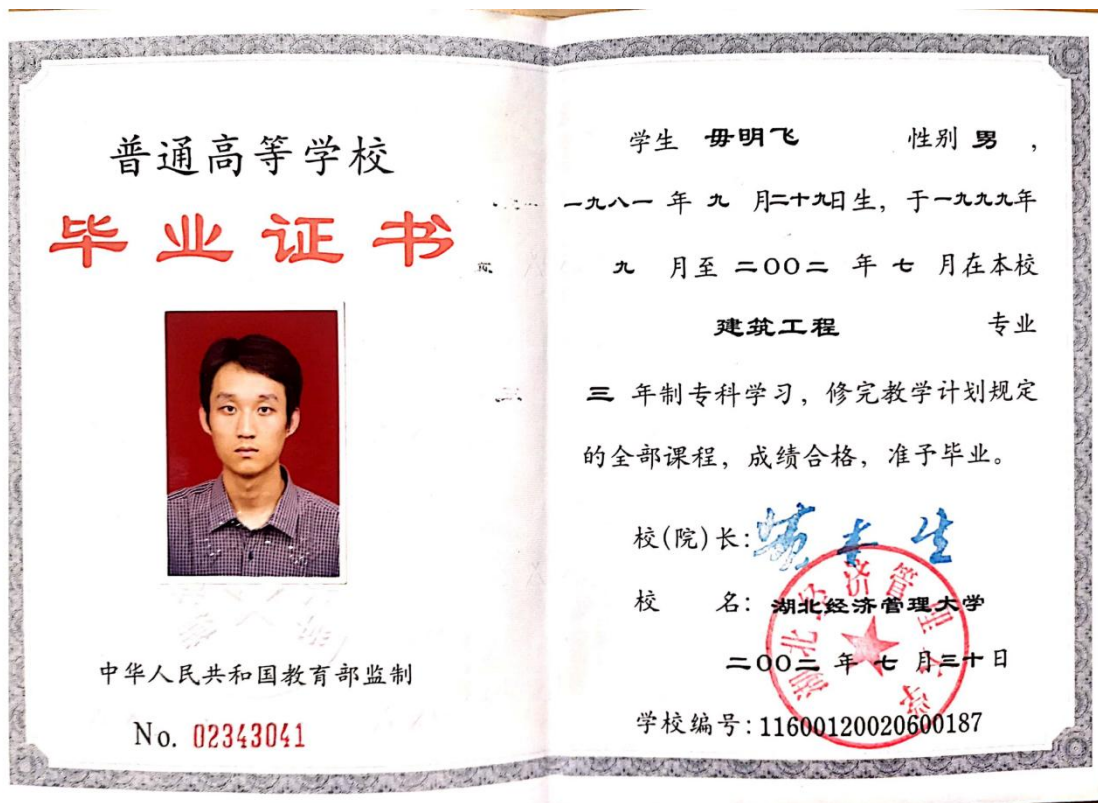 普通高等学校
毕业证书
中华人民共和国教育部监制
No. 02343041
学生 毋明飞 性别 男 ,
一九八一 年 九 月二十九日生, 于一九九九年
九 月至 二〇〇二 年 七 月在本校
建筑工程 专业
三 年制专科学习, 修完教学计划规定
的全部课程, 成绩合格, 准予毕业。
校(院)长:
校 名: 湖北经济管理大学
二〇〇二 年 七 月三十日
学校编号: 11600120020600187
湖北经济管理大学